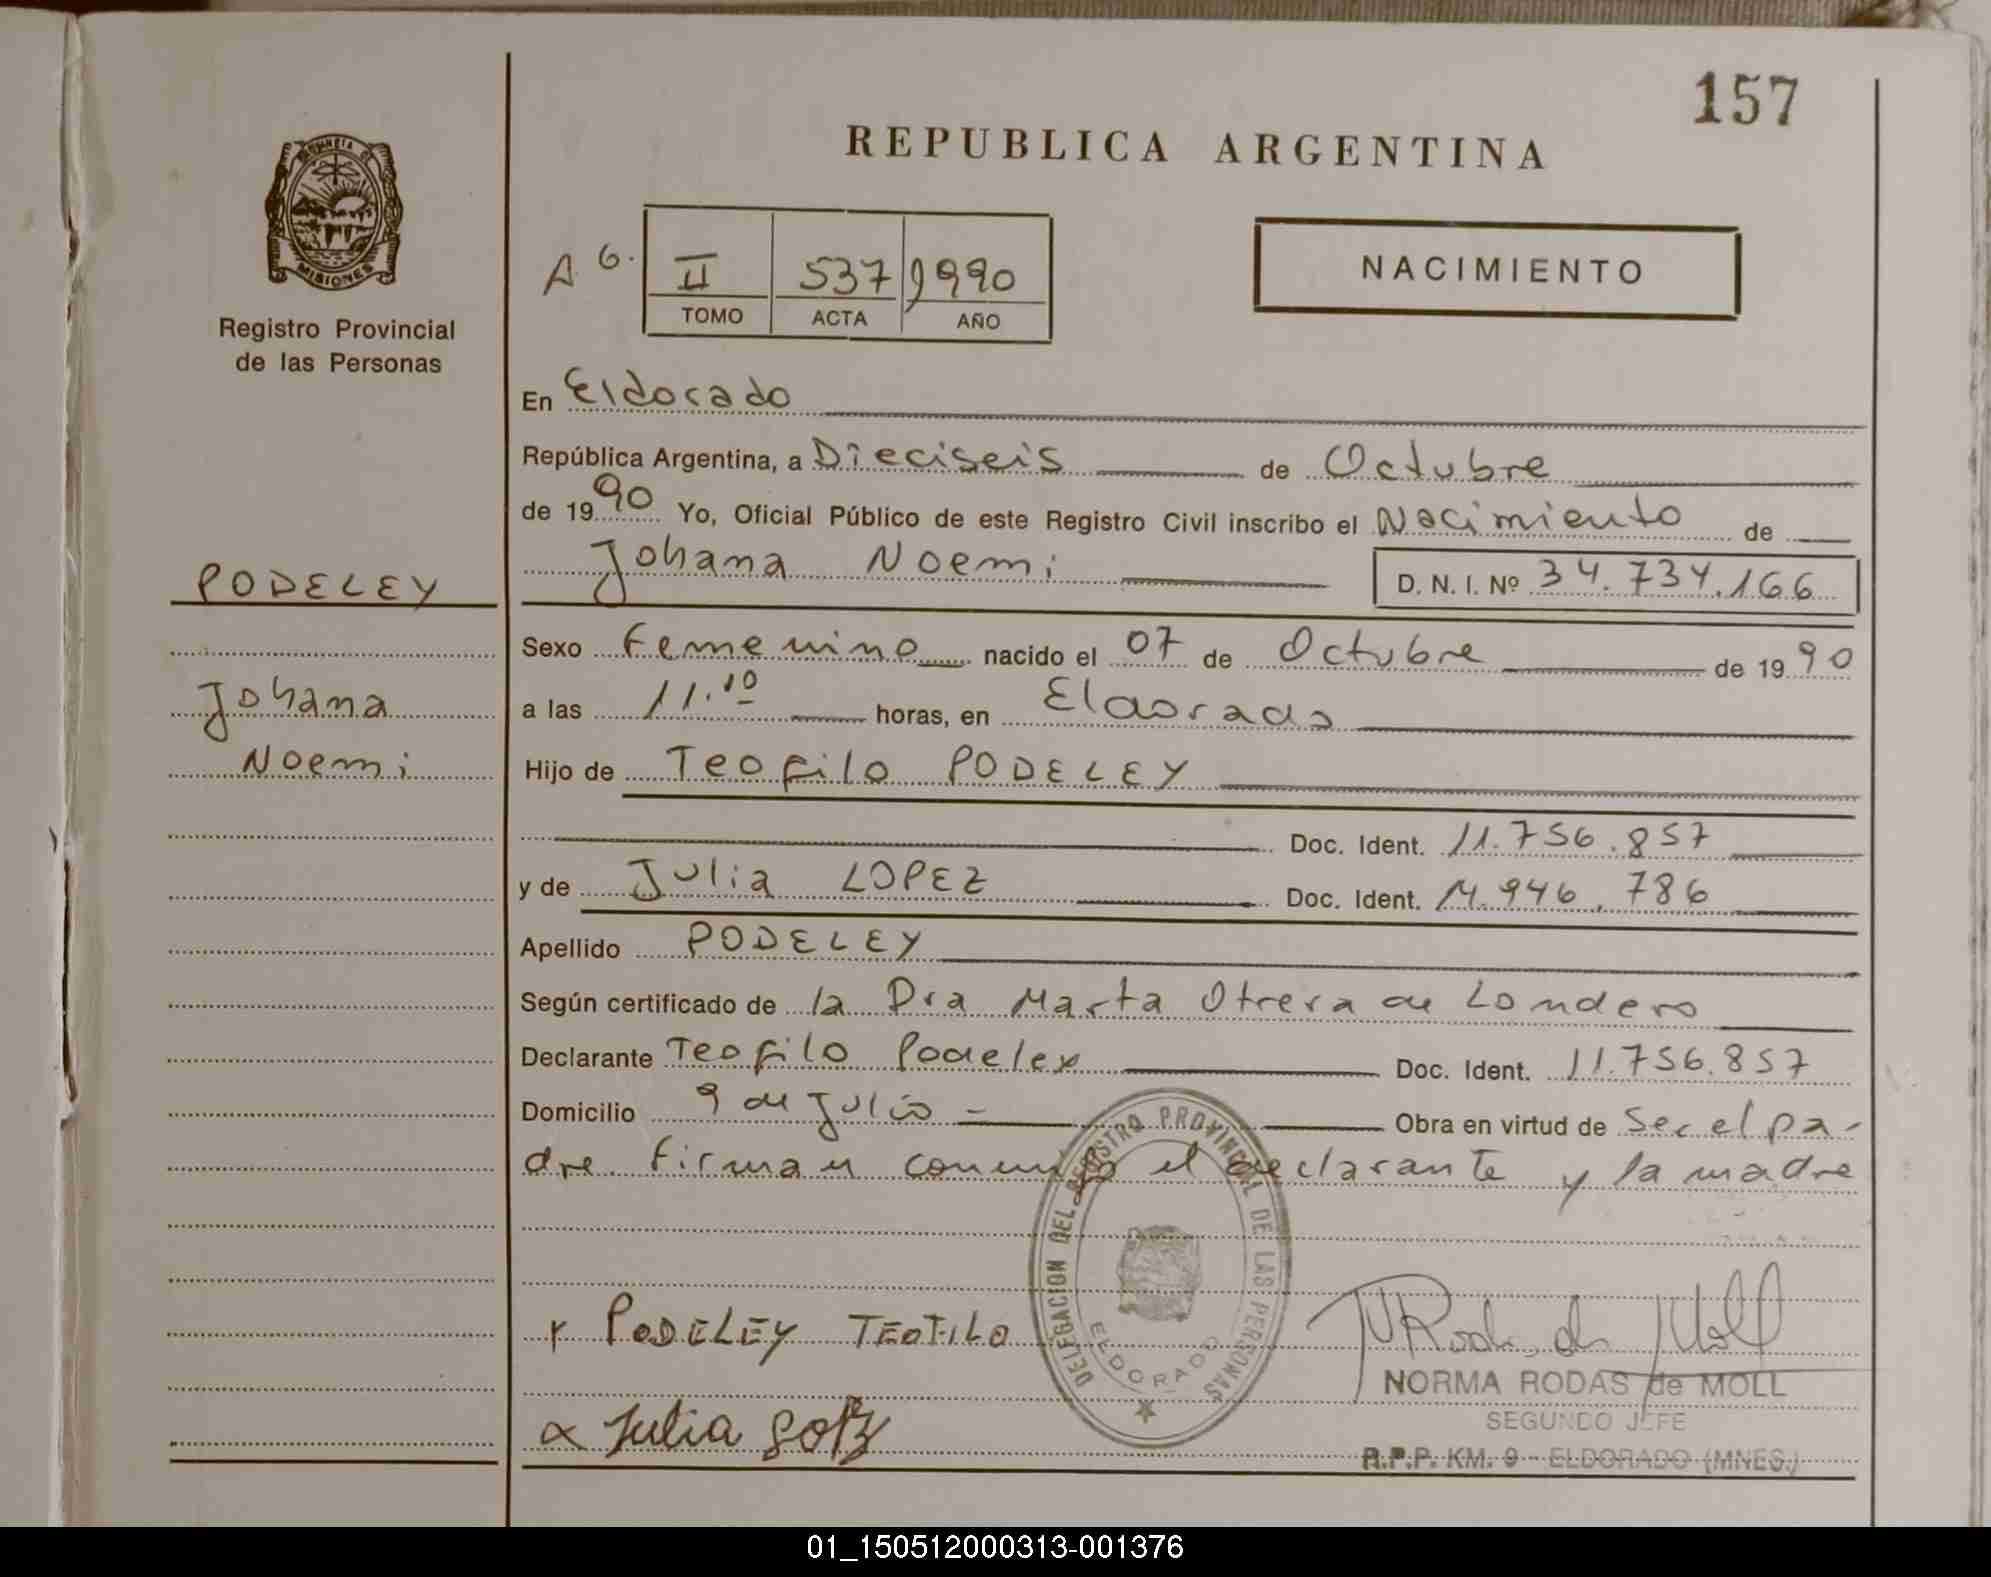 157
REPUBLICA ARGENTINA
PROVINCIA DE
MISIONES
Registro Provincial
de las Personas
A 6.
II 537 1990
TOMO ACTA AÑO
NACIMIENTO
En Eldorado
República Argentina, a Dieciseis de Octubre
de 1990 Yo, Oficial Público de este Registro Civil inscribo el Nacimiento de
Johana Noemi D. N. I. Nº 34.734.166
PODELEY
Johana
Noemi
Sexo Femenino nacido el 07 de Octubre de 1990
a las 11.10 horas, en Eldorado
Hijo de Teofilo PODELEY
Doc. Ident. 11.756.857
y de Julia LOPEZ Doc. Ident. 14.946.786
Apellido PODELEY
Según certificado de la Dra Marta Otrera de Londero
Declarante Teofilo Podeley Doc. Ident. 11.756.857
Domicilio 9 de Julio - Obra en virtud de Ser el pa-
dre. Firman conmigo el declarante y la madre
DELEGACION DEL REGISTRO PROVINCIAL DE LAS PERSONAS
ELDORADO
PODELEY TEOFILO
Julia Lopez
NRodas de Moll
NORMA RODAS de MOLL
SEGUNDO JEFE
R.P.P. KM. 9 - ELDORADO (MNES.)
01_150512000313-001376